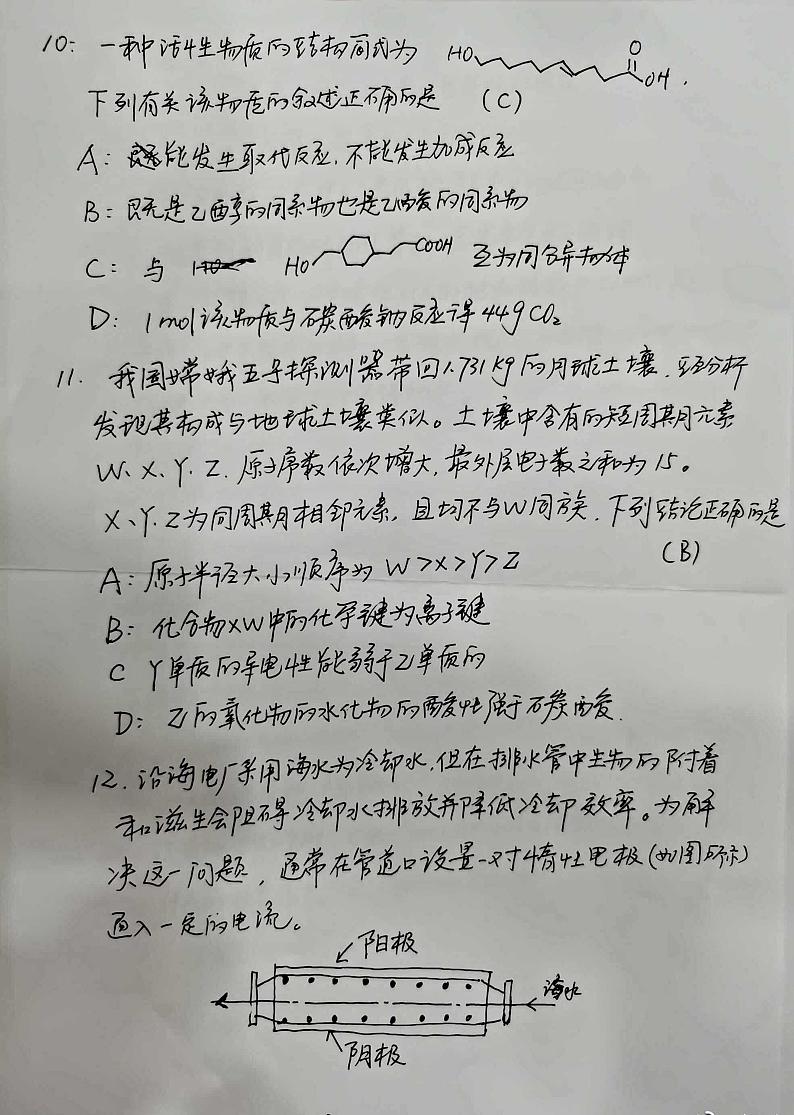 10: 一种活性生物质的结构简式为 HO O OH .
下列有关该物质的叙述正确的是 (C)
A: 能发生取代反应,不能发生加成反应
B: 既是乙醇的同系物也是乙酸的同系物
C: 与 HO COOH 互为同分异构体
D: 1mol该物质与碳酸钠反应得44gCO₂
11. 我国嫦娥五号探测器带回1.731kg的月球土壤,经分析
发现其构成与地球土壤类似。土壤中含有的短周期元素
W、X、Y、Z.原子序数依次增大,最外层电子数之和为15。
X、Y、Z为同周期相邻元素,且均不与W同族.下列结论正确的是
(B)
A: 原子半径大小顺序为 W>X>Y>Z
B: 化合物XW中的化学键为离子键
C Y单质的导电性能弱于Z单质的
D: Z的氧化物的水化物的酸性强于碳酸.
12.沿海电厂采用海水为冷却水,但在排水管中生物的附着
和滋生会阻碍冷却水排放并降低冷却效率。为解
决这一问题,通常在管道口设置一对惰性电极(如图所示)
通入一定的电流。
阳极
海水
阴极